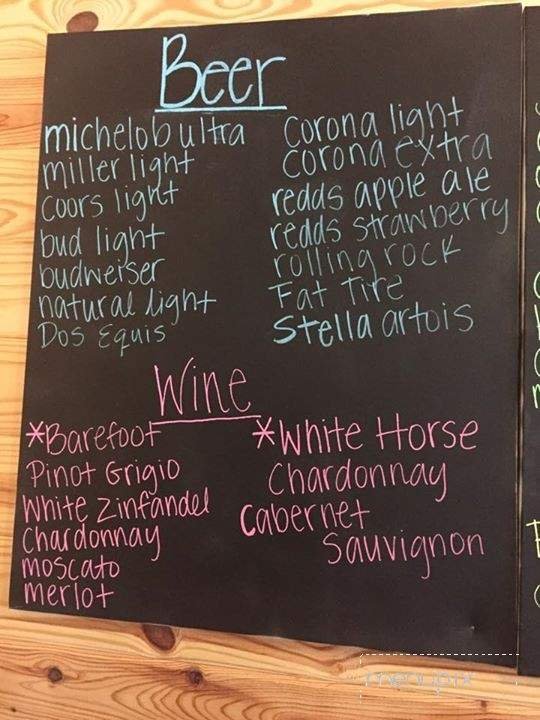 Beer
michelob ultra
miller light
coors light
bud light
budweiser
natural light
Dos Equis
Corona light
corona extra
redds apple ale
redds strawberry
rolling rock
Fat Tire
Stella artois
Wine
*Barefoot
Pinot Grigio
White Zinfandel
Chardonnay
moscato
merlot
*White Horse
Chardonnay
Cabernet
Sauvignon
menupix